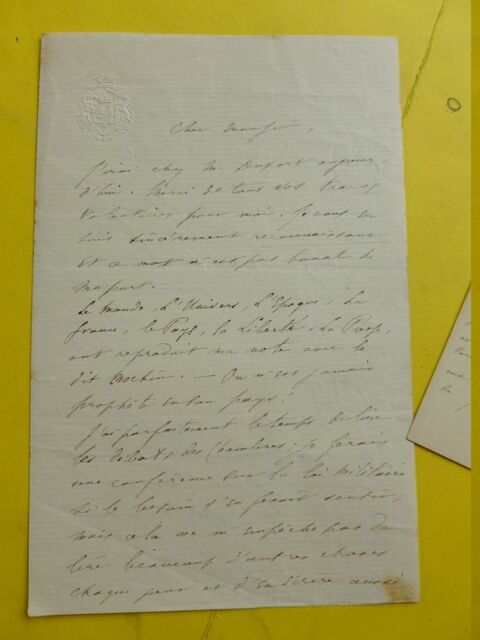 Cher Monsieur,
J'irai chez M. Dufort aujour-
d'hui. Merci de tous vos tracas
volontaires pour moi. Je vous en
suis sincèrement reconnaissant
et ce mot n'est pas banal de
ma part.
Le Monde, L'Univers, L'Epoque, La
France, le Pays, la Liberté, La Presse,
ont reproduit ma note avec le
dit . — On n'est jamais
prophète en son pays!
J'ai parfaitement le temps de lire
les débats des Chambres; je ferais
une conférence sur la loi militaire
si le besoin s'en faisait sentir;
mais cela ne m'empêche pas de
lire beaucoup d'autres choses
chaque jour et d'en écrire aussi